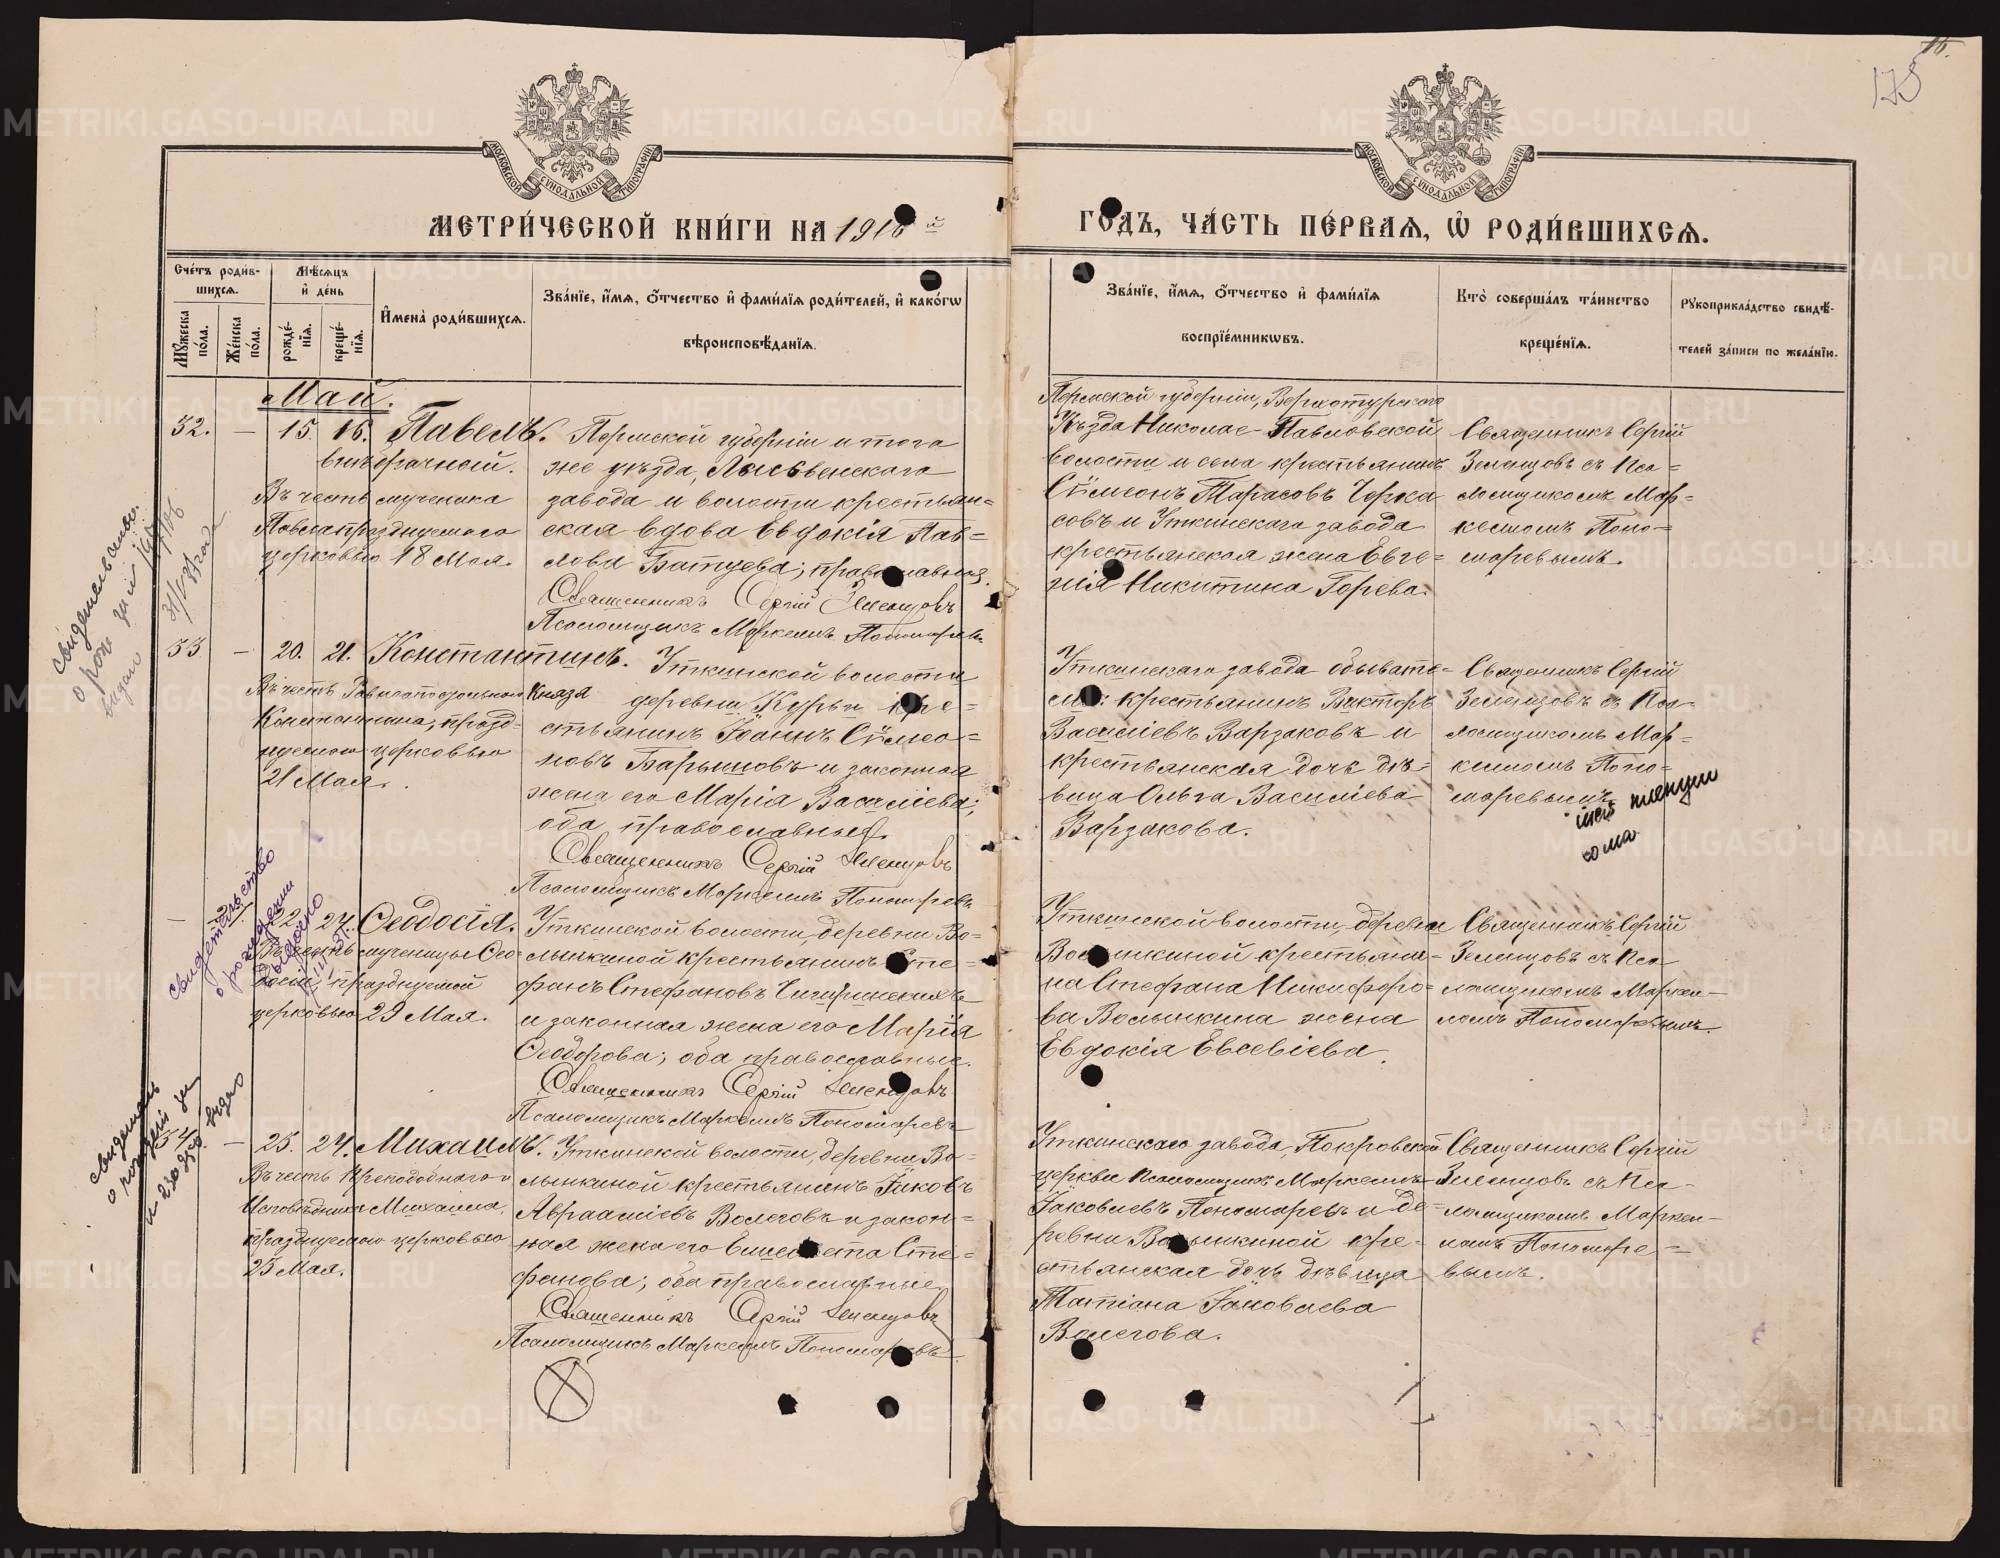 15.
175
МОСКОВСКОЙ СѴНОДАЛЬНОЙ ТИПОГРАФІИ
МОСКОВСКОЙ СѴНОДАЛЬНОЙ ТИПОГРАФІИ
МЕТРИ́ЧЕСКОЙ КНИ́ГИ НА 1916 й
ГО́ДЪ, ЧА́СТЬ ПЕ́РВАѦ, Ѽ РОДИ́ВШИХСѦ.
Сче́тъ роди́в-
шихсѧ.
Мꙋ́жеска
по́ла.
Же́нска
по́ла.
Мѣ́сѧцъ
и҆ де́нь
рожде́-
нїѧ.
креще́-
нїѧ.
И҆мена̀ роди́вшихсѧ.
Зва́нїе, и҆́мѧ, ѻ҆́тчество и҆ фами́лїѧ роди́телей, и҆ како́гѡ
вѣроисповѣ́данїѧ.
Зва́нїе, и҆́мѧ, ѻ҆́тчество и҆ фами́лїѧ
воспрїе́мникѡвъ.
Кто̀ соверша́лъ та́инство
креще́нїѧ.
Рꙋкоприкла́дство свидѣ́-
телей за́писи по жела́нїю.
Май.
32. — 15. 16. Павелъ.
внѣбрачный.
Въ честь мученика
Павла празднуемого
церковью 18 Мая.
Пермской губерніи и того
же уѣзда, Лысьвенскаго
завода и волости крестьян-
ская вдова Евдокія Пав-
лова Батуева; православная.
Священникъ Сергій Земляцовъ
Псаломщикъ Маркеллъ Пономаревъ
Пермской губерніи, Верхотурскаго
Уѣзда Николае-Павловской
волости и села крестьянинъ
Сѵмеонъ Тарасовъ Черка
совъ и Уткинскаго завода
крестьянская жена Евге-
нія Никитина Горева.
Священникъ Сергій
съ Пса-
ломщикомъ Мар-
келломъ Поно-
маревымъ.
33 — 20. 21. Константинъ.
Въ честь Равноапостольнаго Князя
Константина, празд-
нуемого церковью
21 Мая.
Уткинской волости
деревни Курьи кре-
стьянинъ Іоаннъ Сѵмео-
новъ и законная
жена его Марія Василіева;
оба православные.
Священникъ Сергій
Псаломщикъ Маркеллъ Пономаревъ
Уткинскаго завода обывате-
ли: крестьянинъ Викторъ
Василіевъ Варзаковъ и
крестьянская дочь дѣ-
вица Ольга Василіева
Варзакова.
Священникъ Сергій
съ Пса-
ломщикомъ Мар-
келломъ Поно-
маревымъ
— 22. 24. Ѳеодосія.
Въ честь мученицы Ѳео-
досіи, празднуемой
церковью 29 Мая.
Уткинской волости, деревни Во-
лынкиной крестьянинъ Сте-
фанъ Стефановъ Чигиринскихъ
и законная жена его Марія
Ѳеодорова; оба православные.
Священникъ Сергій
Псаломщикъ Маркеллъ Пономаревъ
Уткинской волости, деревни
Волынкиной крестьяни-
на Стефана Никифоро-
ва Волынкина жена
Евдокія Евсевіева.
Священникъ Сергій
съ Пса-
ломщикомъ Маркел-
ломъ Пономаревымъ
34. — 23. 24. Михаилъ.
Въ честь Преподобнаго и
Исповѣдника Михаила,
празднуемого церковью
23 Мая.
Уткинской волости, деревни Во-
лынкиной крестьянинъ Іаковъ
Авраамiевъ Волеговъ и закон-
ная жена его Елисавета Сте-
фанова; оба православные.
Священникъ Сергій
Псаломщикъ Маркеллъ Пономаревъ
Уткинскаго завода, Покровской
церкви Псаломщикъ Маркеллъ
Іаковлевъ Пономаревъ и де-
ревни Волынкиной кре-
стьянская дочь дѣвица
Татіана Іаковлева
Волегова.
Священникъ Сергій
съ Пса-
ломщикомъ Маркел-
ломъ Пономаре-
вымъ.
свидетельство
о рождении
выдано
METRIKI.GASO-URAL.RU